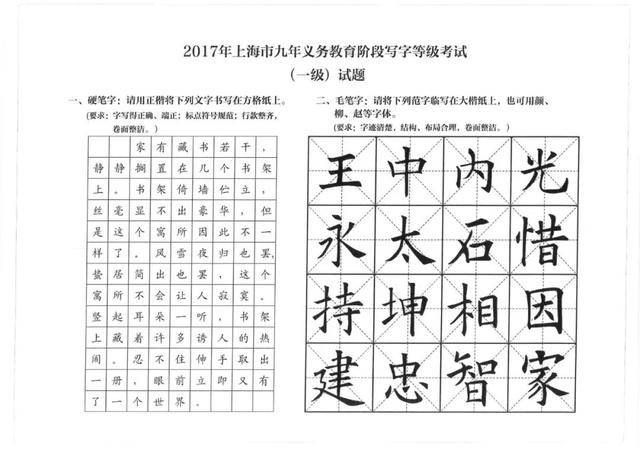 2017年上海市九年义务教育阶段写字等级考试
（一级）试题
一、硬笔字：请用正楷将下列文字书写在方格纸上。
（要求：字写得正确、端正；标点符号规范；行款整齐，
卷面整洁。）
家有藏书若干，
静静搁置在几个书架
上。书架倚墙伫立，
丝毫显不出豪华，但
是这个寓所因此不一
样了。风雪夜归也罢，
蛰居简出也罢，这个
寓所不会让人寂寞。
竖起耳朵一听，书架
上藏着许多诱人的热
闹。忍不住伸手取出
一册，眼前立即又有
了一个世界。
二、毛笔字：请将下列范字临写在大楷纸上，也可用颜、
柳、赵等字体。
（要求：字迹清楚，结构、布局合理，卷面整洁。）
王中内光
永太石惜
持坤相因
建忠智家